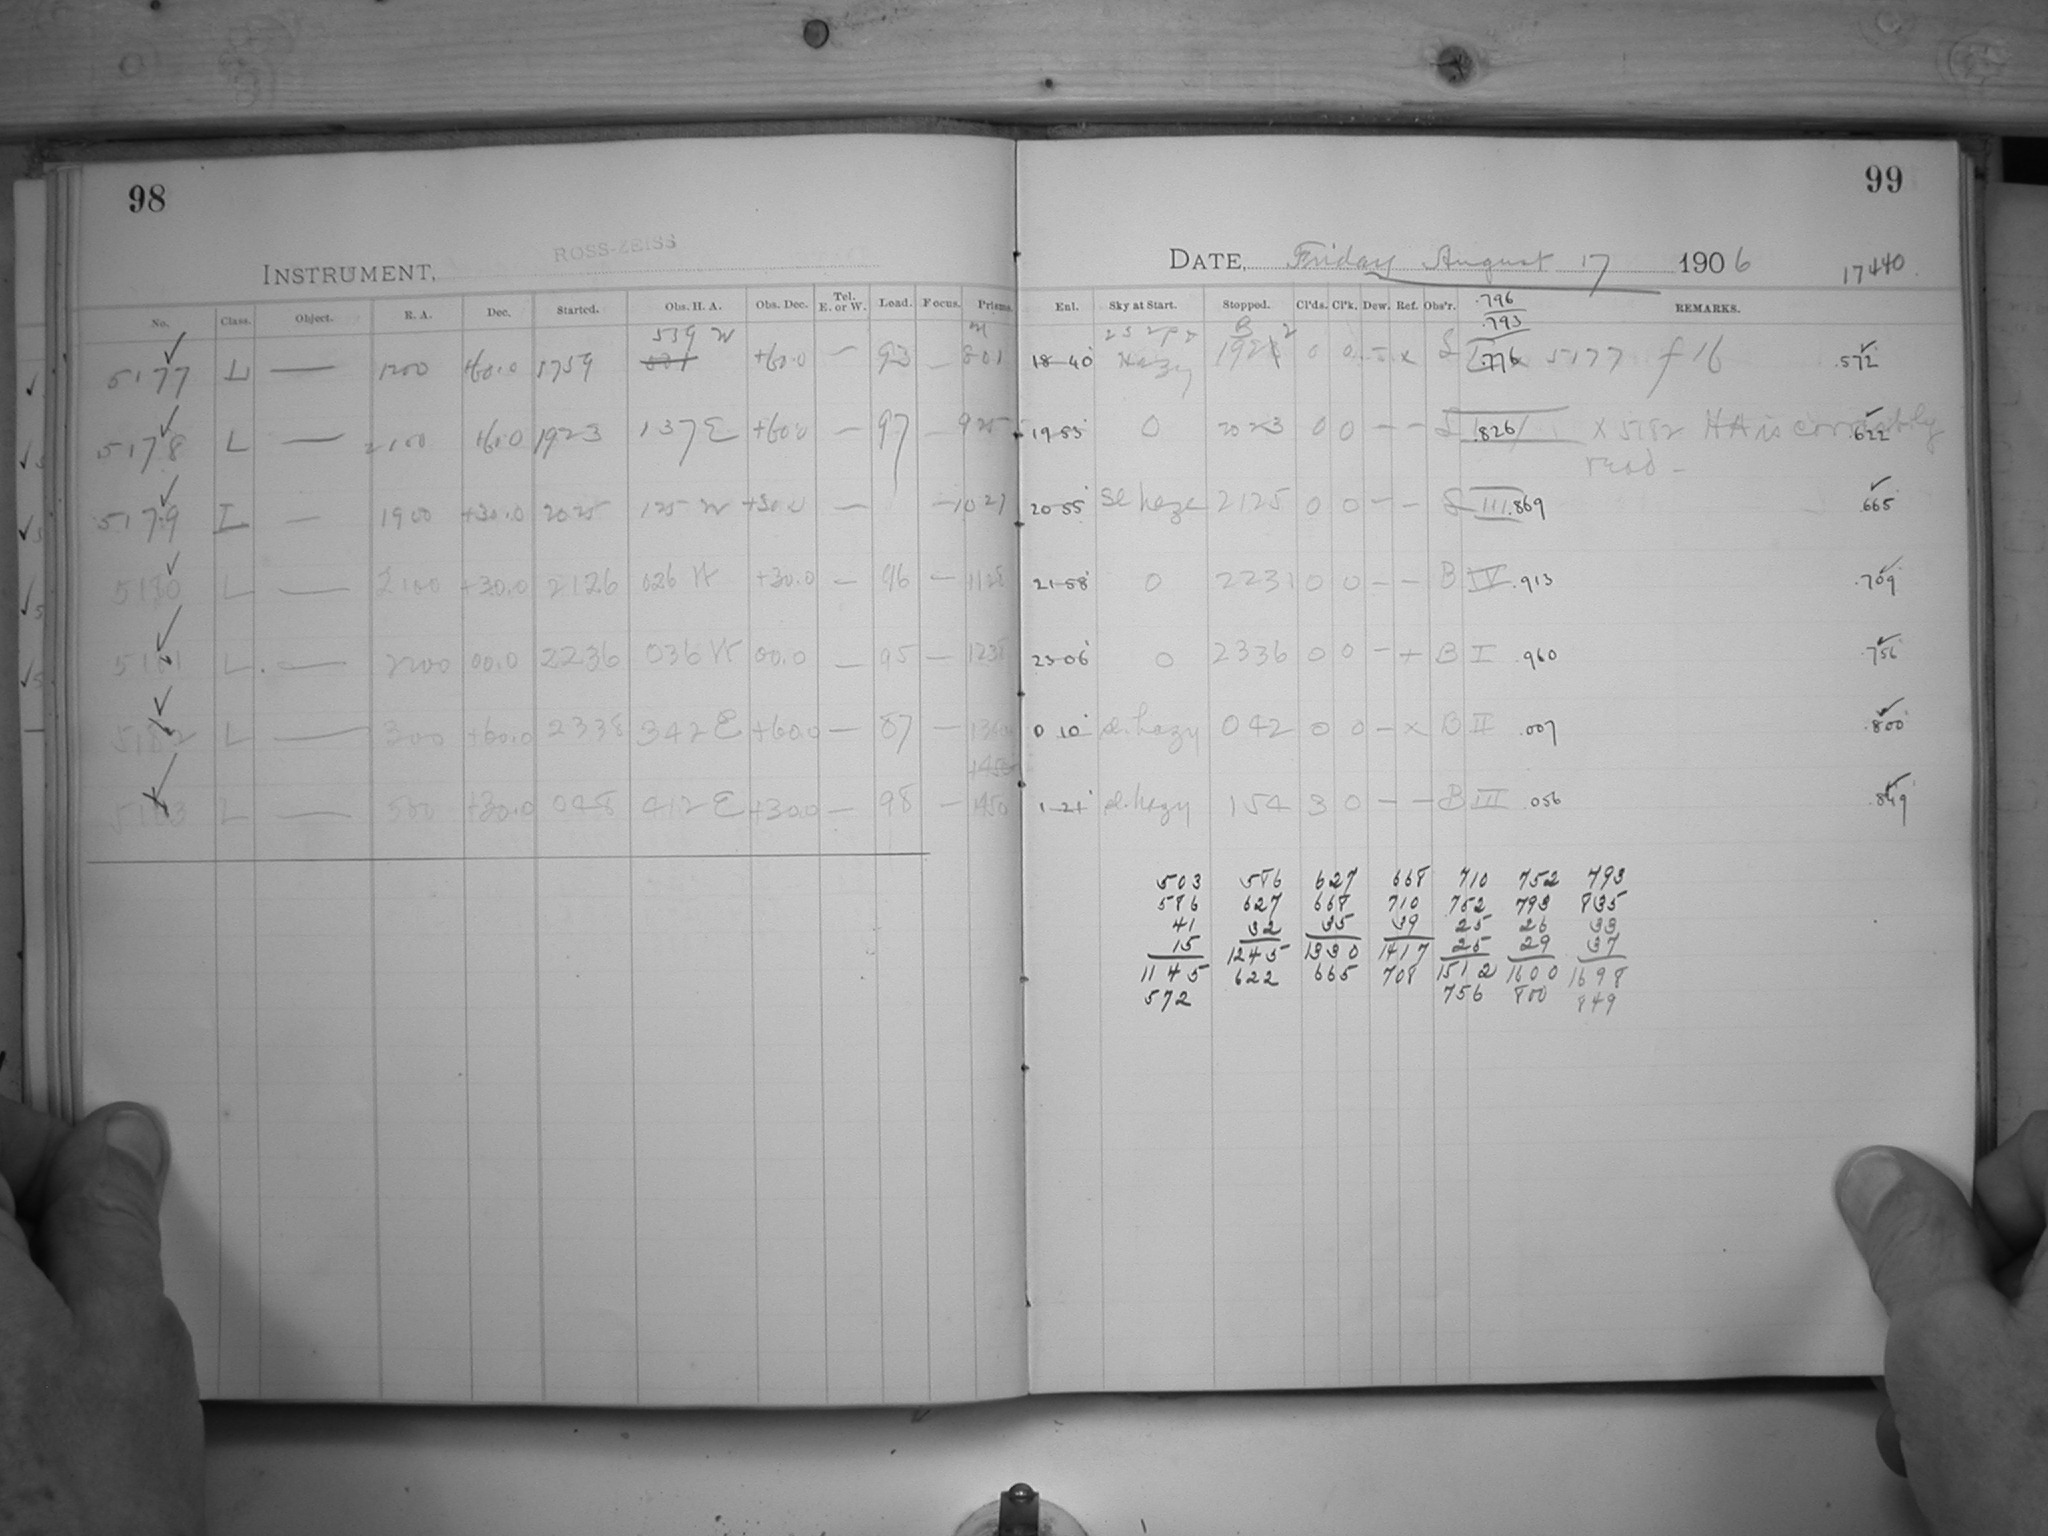 98
99
ROSS-ZEISS
INSTRUMENT,
DATE, Friday August 17 1906
17440
No. Class. Object. R. A. Dec. Started. Obs. H. A. Obs. Dec. Tel. E. or W. Load. Focus. Prisms. Enl. Sky at Start. Stopped. Cl'ds. Cl'k. Dew. Ref. Obs'r. REMARKS.
.796
.793
539 W
5177 L — 1200 +60.0 1759 +60.0 — 93 — 801 18-40 Hazy 0 0 - x .776 5177 f 16 .572
5178 L — 2100 +60.0 1923 137 E +60.0 — 97 — 925 19-53 0 2023 0 0 - - .826 x 5182 HA is correctly .622
read -
5179 L — 1900 +30.0 2025 125 W +30.0 — — 1027 20-55 Sl haze 2125 0 0 - - III .869 .665
5180 L — 2100 +30.0 2126 026 W +30.0 — 96 — 1128 21-58 0 2231 0 0 - - B IV .913 .709
5181 L — 2200 00.0 2236 036 W 00.0 — 95 — 1238 23-06 0 2336 0 0 - + B I .960 .756
5182 L — 300 +60.0 2338 342 E +60.0 — 87 — 0 10 sl. hazy 042 0 0 - x B II .007 .800
5183 L — 500 +30.0 048 412 E +30.0 — 98 — 1450 1-21 sl. hazy 154 3 0 - - B III .056 .849
503 586 627 668 710 752 793
586 627 668 710 752 793 835
41 32 35 39 25 26 33
15 1245 1330 1417 25 29 37
1145 622 665 708 1512 1600 1698
572 756 800 849